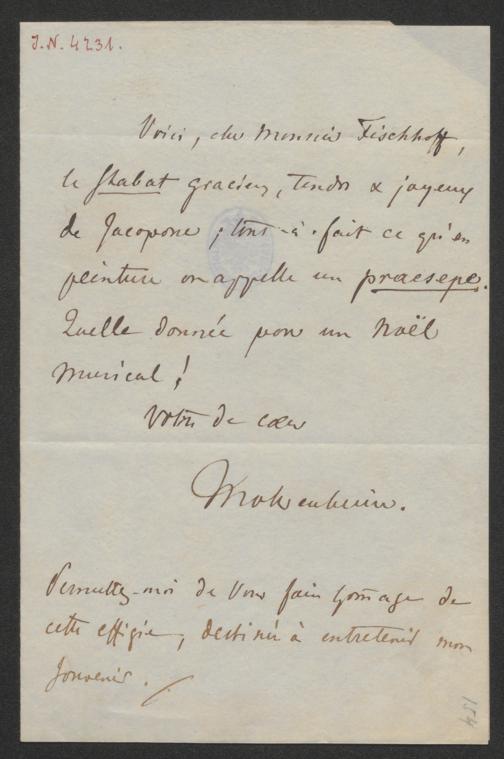 J.N. 4231.
Voici, cher Monsieur Fischhoff,
le Stabat gracieux, tendre & joyeux
de Jacopone ; tout-à-fait ce qu'en
peinture on appelle un praesepe.
Quelle donnée pour un Noël
musical !
Votre de cœur
Permettez-moi de vous faire homage de
cette effigie, destinée à entretenir mon
souvenir.
154